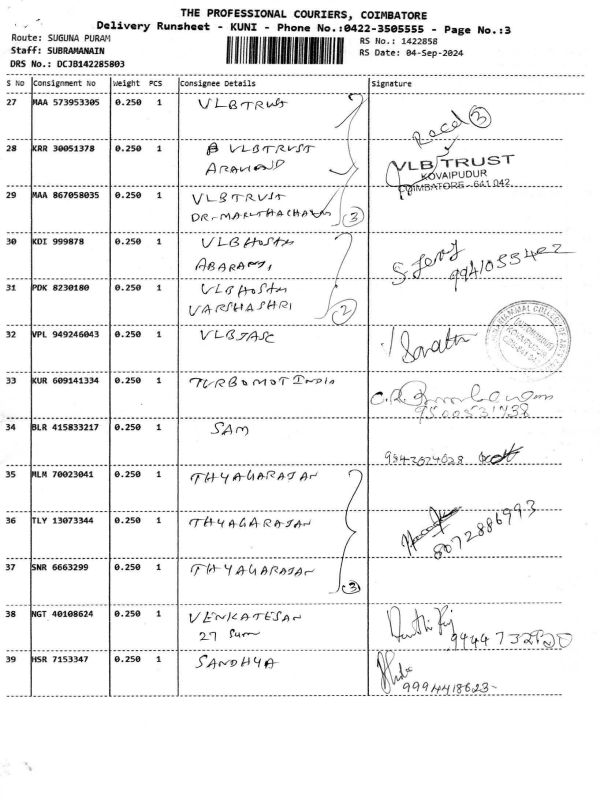 THE PROFESSIONAL COURIERS, COIMBATORE
Delivery Runsheet - KUNI - Phone No.:0422-3505555 - Page No.:3
Route: SUGUNA PURAM
RS No.: 1422858
Staff: SUBRAMANAIN
RS Date: 04-Sep-2024
DRS No.: DCJB142285803
S No Consignment No Weight PCS Consignee Details Signature
27 MAA 573953305 0.250 1 VLBTRUST
Recd 3
28 KRR 30051378 0.250 1 VLBTRUST
ARAVIND
VLB TRUST
KOVAIPUDUR
COIMBATORE - 641 042
29 MAA 867058035 0.250 1 VLBTRUST
DR-MARUTHACHALAM 3
30 KDI 999878 0.250 1 VLBHOSTM
9941055482
31 PDK 8230180 0.250 1 VLBHOSTM
VARSHASHRI 2
32 VPL 949246043 0.250 1 VLBJASC
33 KUR 609141334 0.250 1 TURBOMOT INDIA
34 BLR 415833217 0.250 1 SAM
35 MLM 70023041 0.250 1 THYAGARAJAN
36 TLY 13073344 0.250 1 THYAGARAJAN
8072886993
37 SNR 6663299 0.250 1 THYAGARAJAN
3
38 NGT 40108624 0.250 1 VENKATESAN
27
39 HSR 7153347 0.250 1 SANDHYA
9994418623-